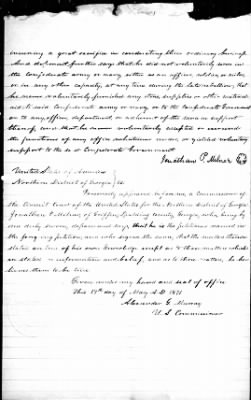 incurring a great sacrifice in conducting their ordinary business
And deponent further says that he did not voluntarily serve in
the Confederate army or navy, either as an officer, soldier or sailor,
or in any other capacity, at any time during the late rebellion, that
he never voluntarily furnished any stores, supplies or other material
aid to said Confederate army or navy, or to the Confederate Government
or to any officer, department, or adherent of the same in support
thereof, and that he never voluntarily accepted or exercised
the functions of any office whatsoever under, or yielded voluntary
support to the said Confederate Government
Jonathan P. Milner
United States of America
Northern District of Georgia ss.
Personally appeared before me, a Commissioner of
the Circuit Court of the United States for the Northern District of Georgia
Jonathan P. Milner of Griffin, Spalding County Georgia, who being by
me duly sworn, deposes and says that he is the petitioner named in
the foregoing petition, and who signed the same, that the matters therein
stated are true of his own knowledge except as to those matters which
are stated on information and belief, and as to those matters, he be-
lieves them to be true
Given under my hand and seal of office
this 19th day of May A.D. 1871
Alexander G. Murray
U.S. Commissioner